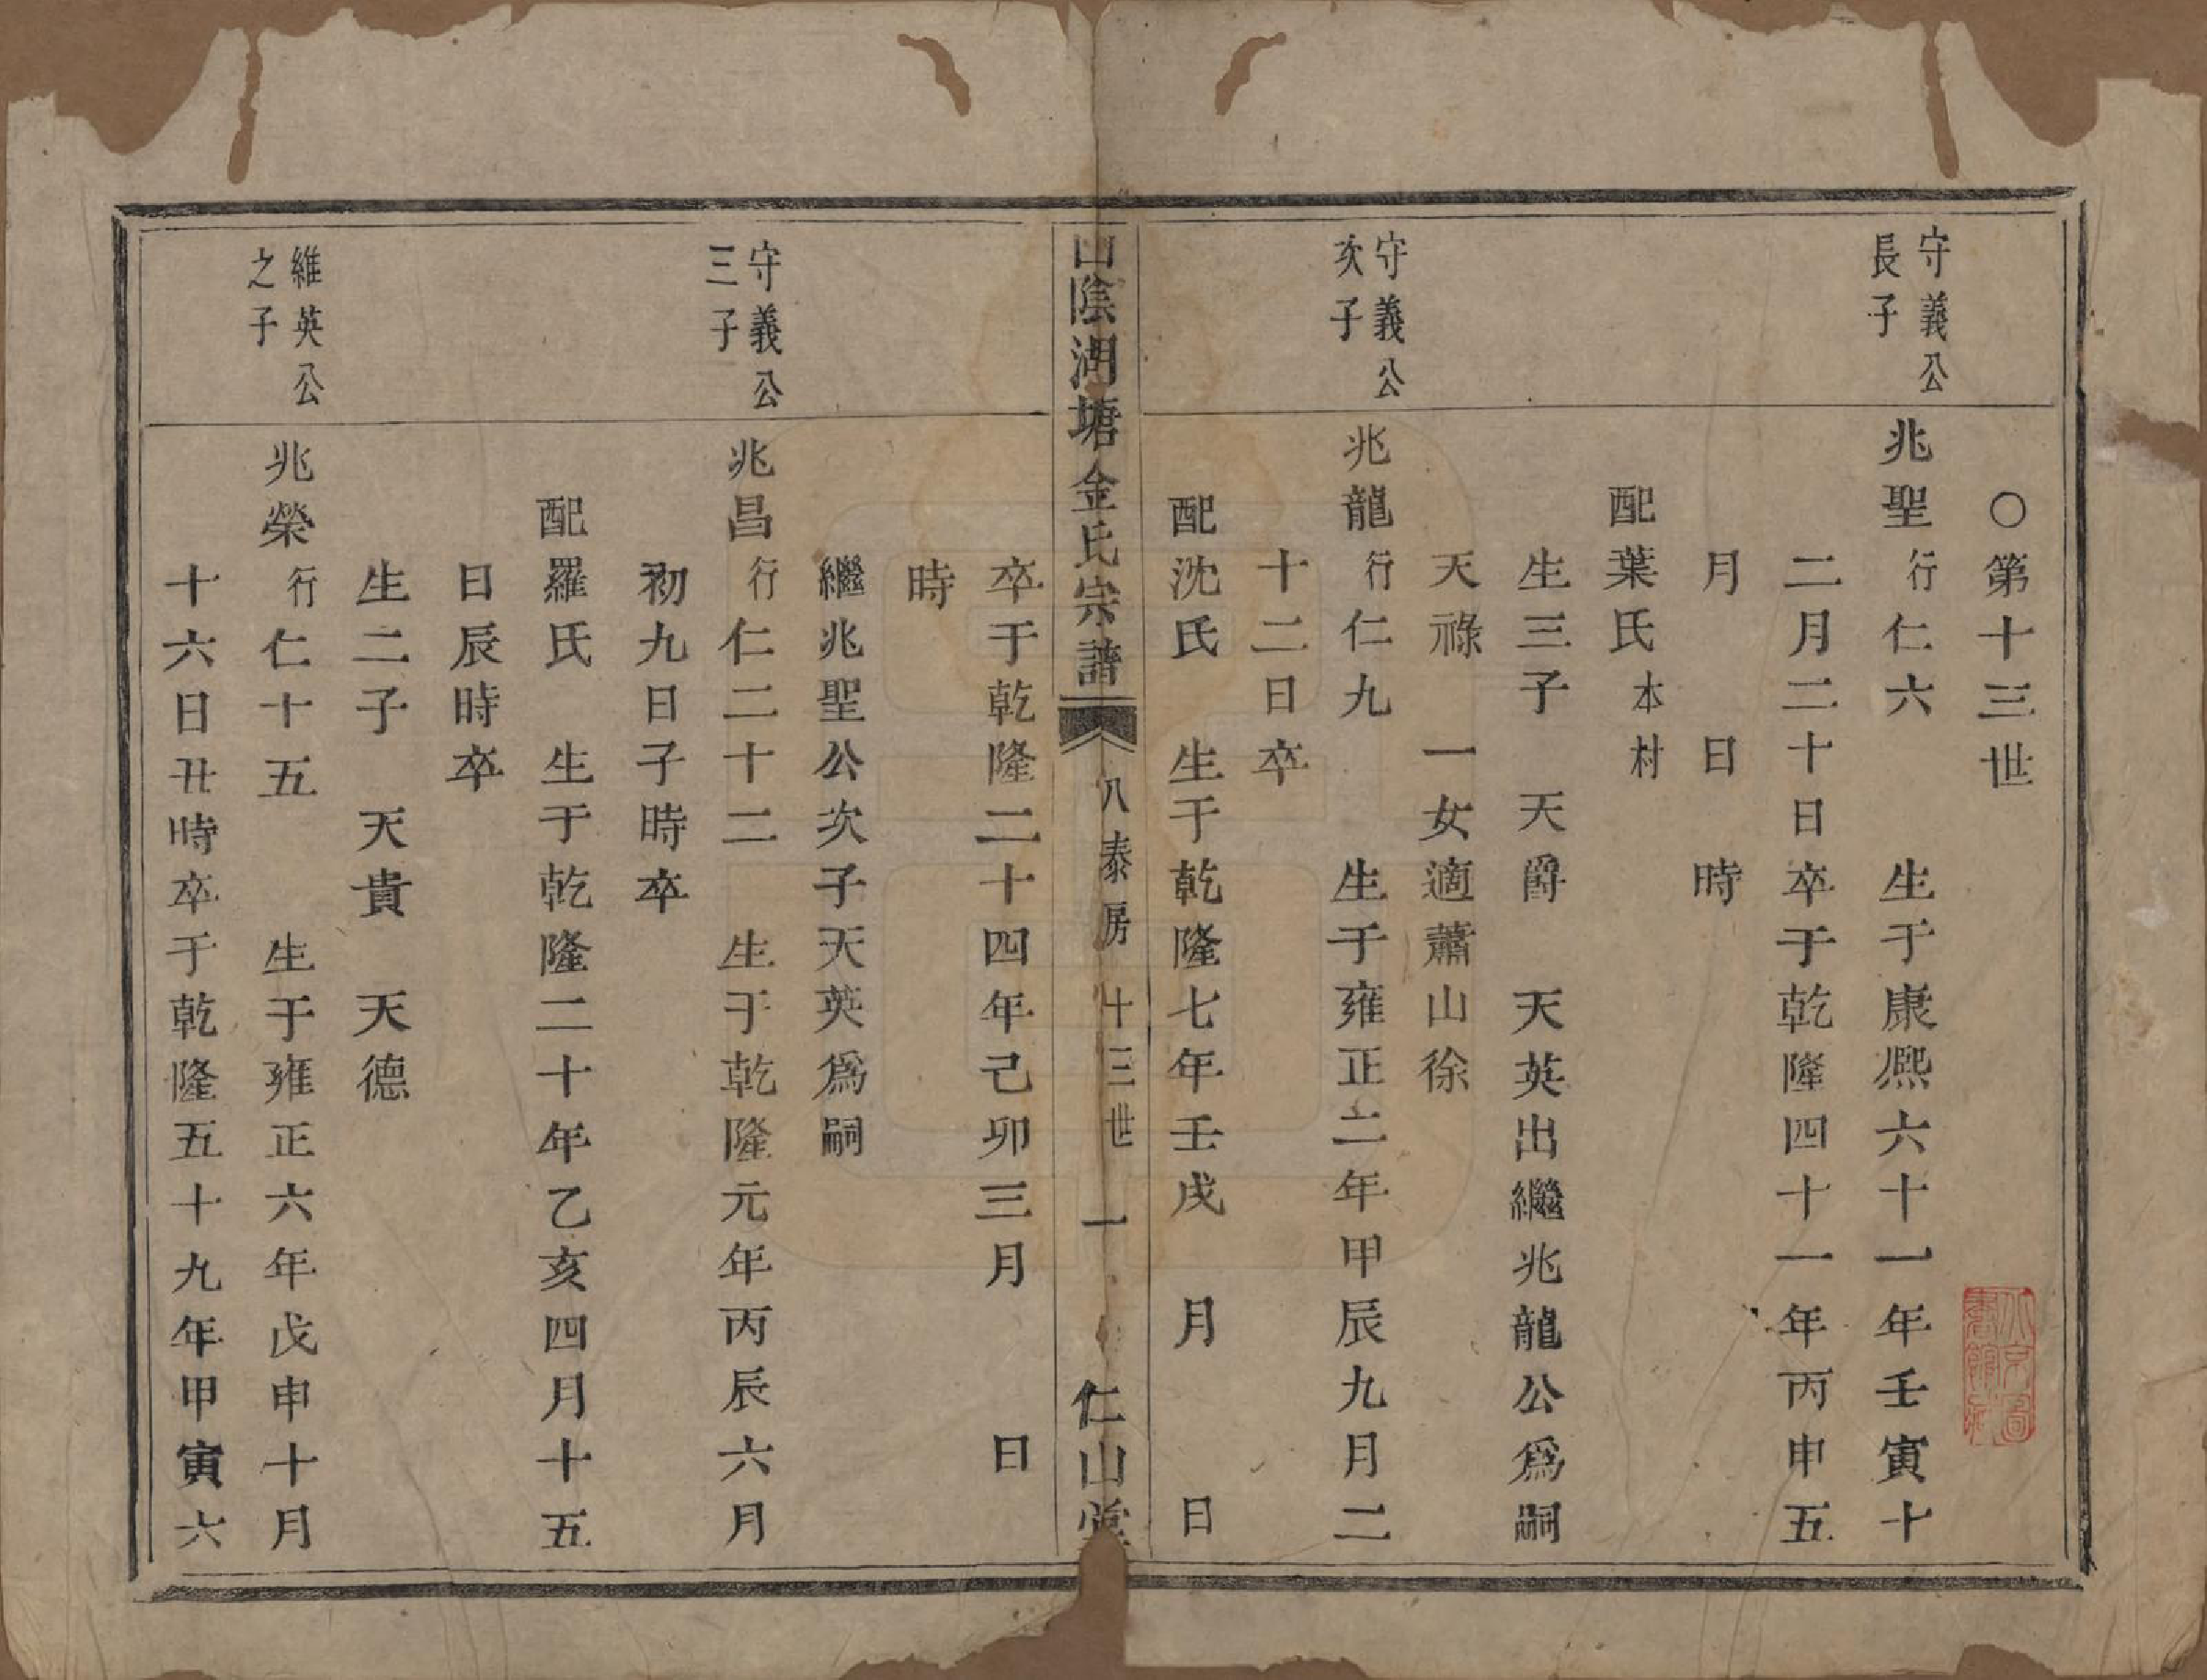 〇第十三世
守義公
長子
兆聖行仁六 生于康熙六十一年壬寅十
二月二十日卒于乾隆四十一年丙申五
月 日 時
配葉氏本村
生三子 天爵 天英出繼兆龍公爲嗣
天祿 一女適蕭山徐
守義公
次子
兆龍行仁九 生于雍正二年甲辰九月二
十二日卒
配沈氏 生于乾隆七年壬戌 月 日
山陰湖塘金氏宗譜 八泰房 十三世 一 仁山堂
卒于乾隆二十四年己卯三月 日
時
繼兆聖公次子天英爲嗣
守義公
三子
兆昌行仁二十二 生于乾隆元年丙辰六月
初九日子時卒
配羅氏 生于乾隆二十年乙亥四月十五
日辰時卒
生二子 天貴 天德
維英公
之子
兆榮行仁十五 生于雍正六年戊申十月
十六日丑時卒于乾隆五十九年甲寅六